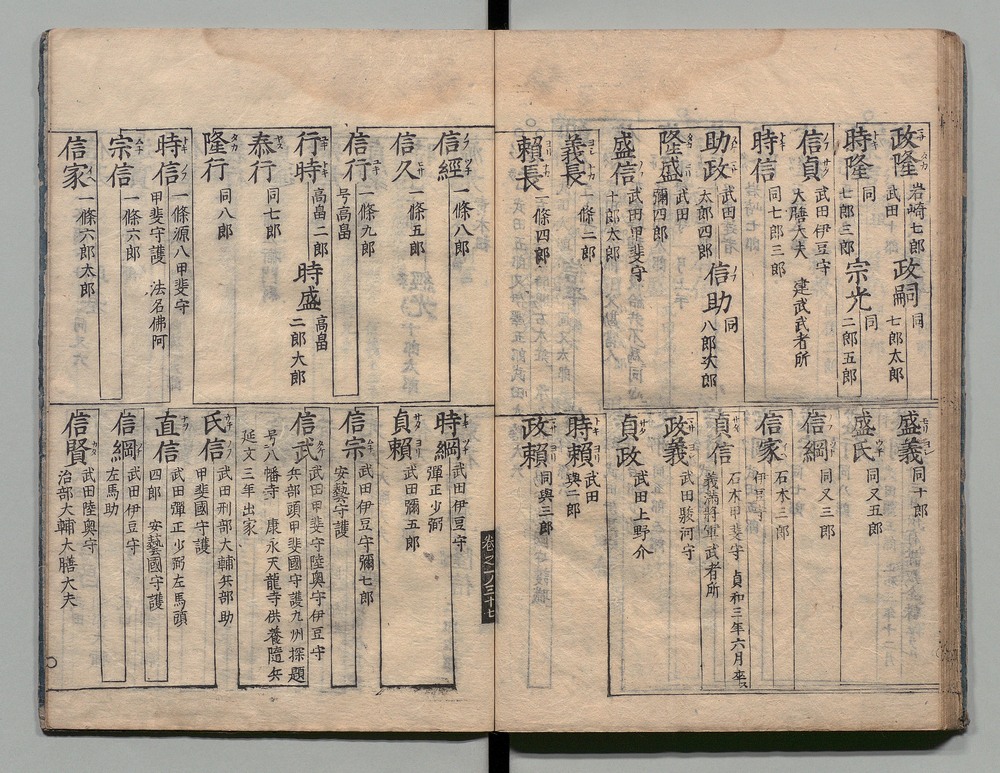 政隆 岩崎七郎
武田十郎
政嗣 同
七郎太郎
時隆 同
七郎三郎
宗光 同
二郎五郎
信貞 武田伊豆守
大膳大夫 建武武者所
時信 同七郎三郎
助政 武田
太郎四郎
信助 同
八郎次郎
隆盛 武田
彌四郎
盛信 武田甲斐守
十郎太郎
義長 一條二郎
賴長 一條四郎
盛義 同十郎
盛氏 同又五郎
信綱 同又三郎
信家 石木三郎
伊豆守
貞信 石木甲斐守 貞和三年六月卒ス
義滿將軍武者所
政義 武田駿河守
貞政 武田上野介
時賴 武田
與二郎
政賴 同與三郎
卷之一ノ三十七
信經 一條八郎
信久 一條五郎
信行 一條九郎
号高畠
行時 高畠二郎
時盛 高畠
二郎大郎
泰行 同七郎
隆行 同八郎
時信 一條源八甲斐守
甲斐守護 法名佛阿
宗信 一條六郎
信家 一條六郎太郎
時綱 武田伊豆守
彈正少弼
貞賴 武田彌五郎
信宗 武田伊豆守彌七郎
安藝守護
信武 武田甲斐守陸奥守伊豆守
兵部頭甲斐國守護九州探題
号八幡寺 康永天龍寺供養隨兵
延文三年出家
氏信 武田刑部大輔兵部助
甲斐國守護
直信 武田彈正少弼左馬頭
四郎 安藝國守護
信綱 武田伊豆守
左馬助
信賢 武田陸奥守
治部大輔大膳大夫